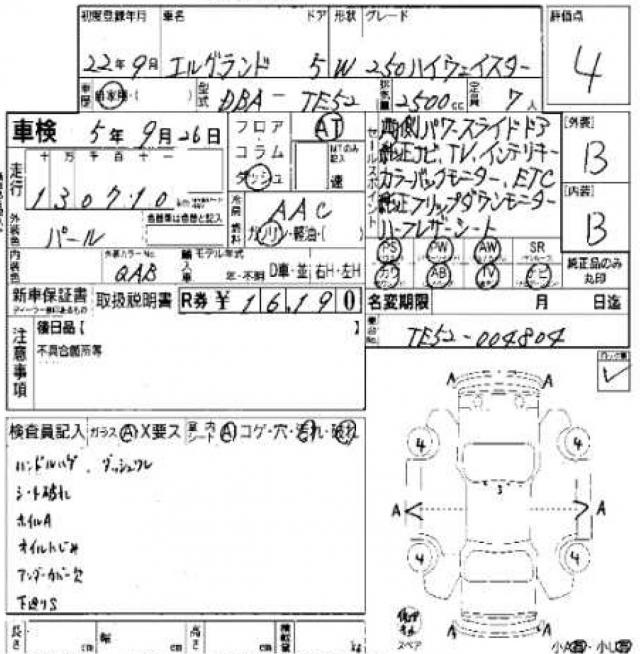 初度登録年月 車名 ドア 形状 グレード 評価点
22年9月 エルグランド 5 W 250ハイウェイスター 4
車歴 自家用・( ) 型式 DBA-TE52 排気量 2500cc 定員 7人
車検 5年9月26日 フロア AT セールスポイント 両側パワースライドドア [外装]
コラム MTのみ記入 純正ナビ、TV、インテリキー B
走行 十万千百十一 ダッシュ 速 カラーバックモニター、ETC
130710km 冷房 AAC 純正フリップダウンモニター [内装]
外装色 パール 色替車は色替と記入 燃料 ガソリン・軽油・( ) ハーフレザーシート B
PS PW AW SR
内装色 外装カラーNo. QAB 輸入車 モデル年式 年・不明 D車・並 右H・左H カワ AB TV ナビ 純正品のみ丸印
新車保証書 取扱説明書 R券¥ 16,190 名変期限 月 日迄
注意事項 後日品【 】 車台No. TE52-004804
不具合箇所等
検査員記入 ガラス A X要ス 室内シート A コゲ・穴・汚れ・破れ
ハンドルハゲ、ダッシュワレ
シート破れ
ホイルA
オイルにじみ
アンダーカバー欠
下廻りS
A A
4 4
3
A A
4 4
A A
スペア
長さ cm 幅 cm 高さ cm 積載量 kg 小A・小U